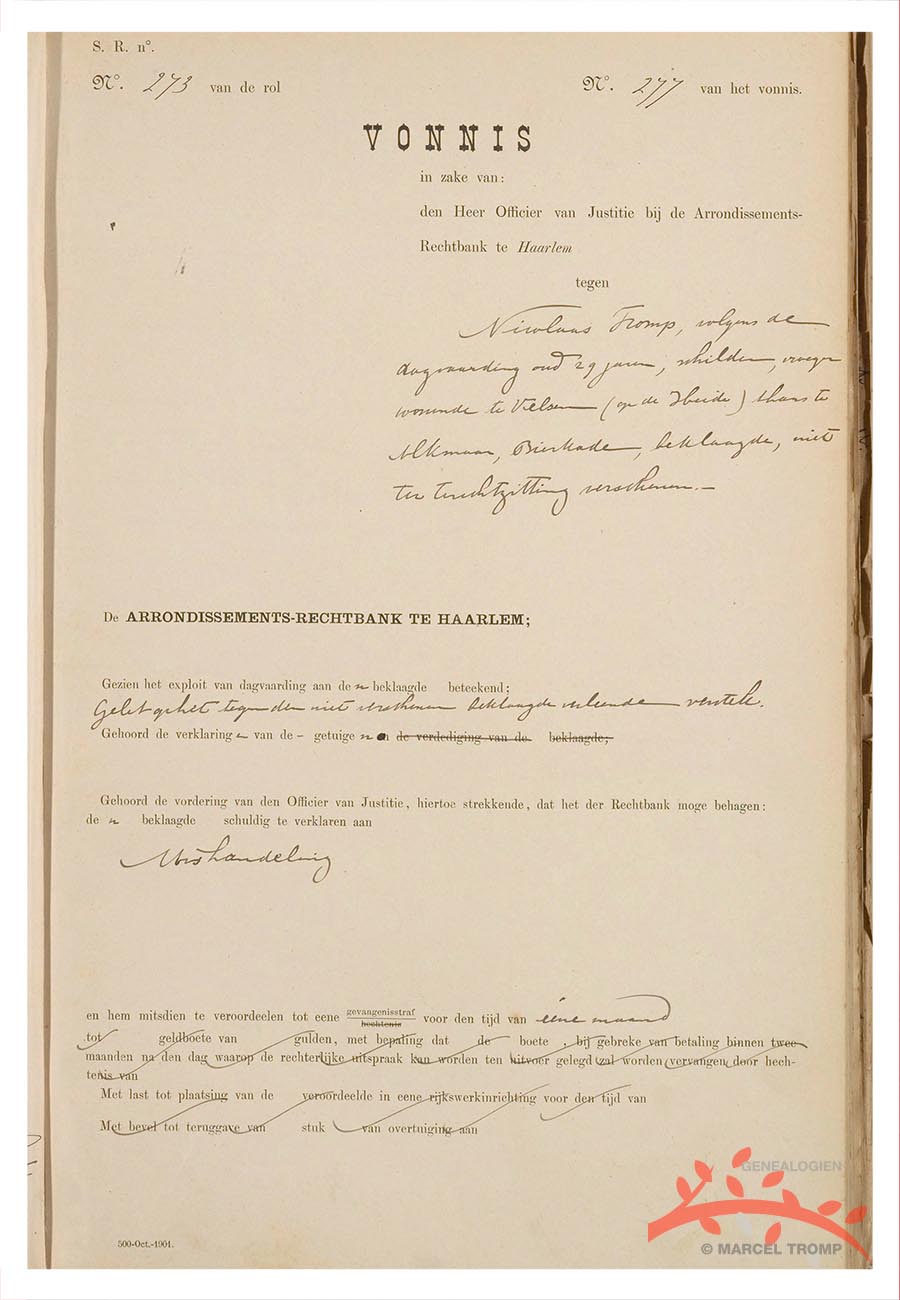 S. R. n°.
N°. 273 van de rol
N°. 277 van het vonnis.
VONNIS
in zake van:
den Heer Officier van Justitie bij de Arrondissements-
Rechtbank te Haarlem
tegen
Nicolaas Tromp, volgens de
dagvaarding oud 29 jaren, schilder, vroeger
wonende te Velsen (op de Heide) thans te
Alkmaar, Bierkade, beklaagde, niet
ter terechtzitting verschenen.—
De ARRONDISSEMENTS-RECHTBANK TE HAARLEM;
Gezien het exploit van dagvaarding aan den beklaagde beteekend;
Gelet op het tegen den niet verschenen beklaagde verleende verstek.
Gehoord de verklaringen van de - getuigen en de verdediging van de beklaagde;
Gehoord de vordering van den Officier van Justitie, hiertoe strekkende, dat het der Rechtbank moge behagen:
den beklaagde schuldig te verklaren aan
Mishandeling
en hem mitsdien te veroordeelen tot eene gevangenisstraf hechtenis voor den tijd van ééne maand
tot geldboete van gulden, met bepaling dat de boete, bij gebreke van betaling binnen twee
maanden na den dag waarop de rechterlijke uitspraak kan worden ten uitvoer gelegd zal worden vervangen door hech-
tenis van
Met last tot plaatsing van de veroordeelde in eene rijkswerkinrichting voor den tijd van
Met bevel tot teruggave van stuk van overtuiging aan
500-Oct.-1901.
GENEALOGIEN
© MARCEL TROMP